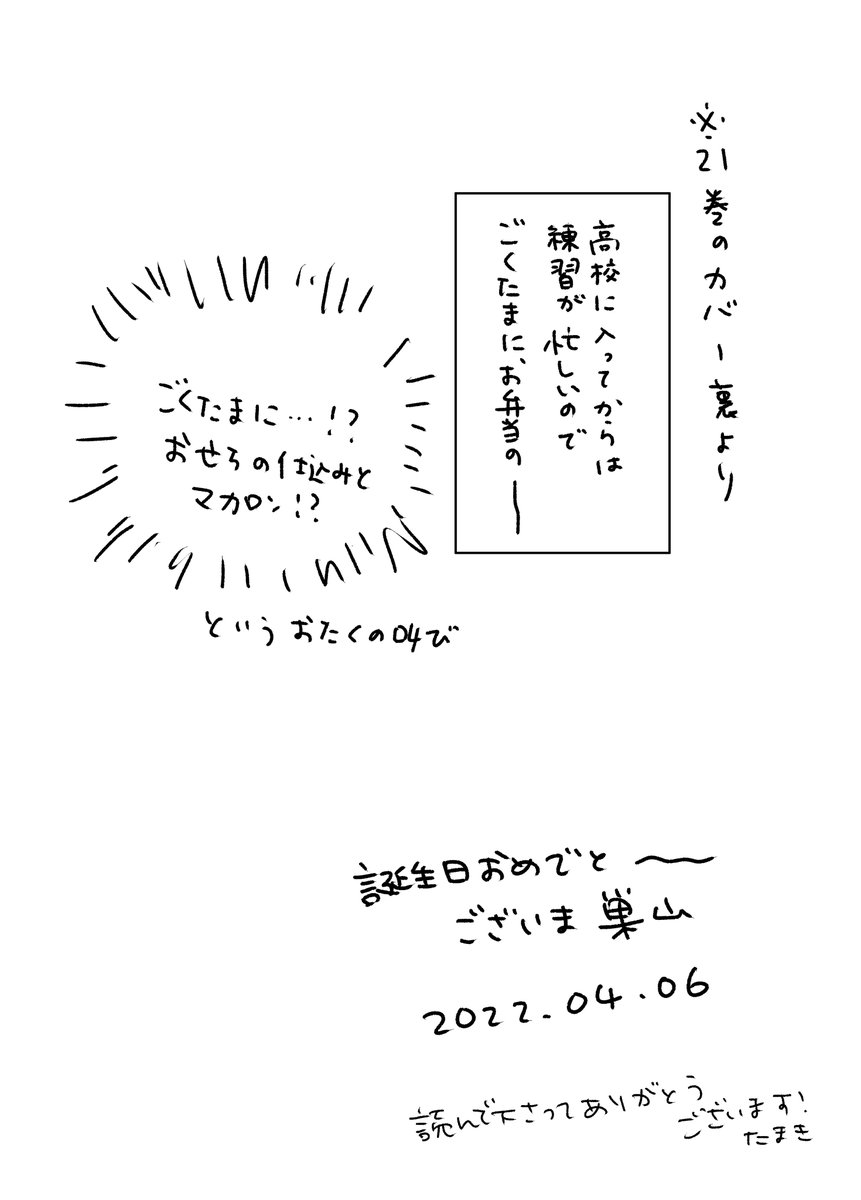 ※21巻のカバー裏より
高校に入ってからは
練習が忙しいので
ごくたまに、お弁当の〜
ごくたまに…!?
おせちの仕込みと
マカロン!?
というおたくの叫び
誕生日おめでと〜
ございま巣山
2022.04.06
読んで下さってありがとう
ございます!
たまき